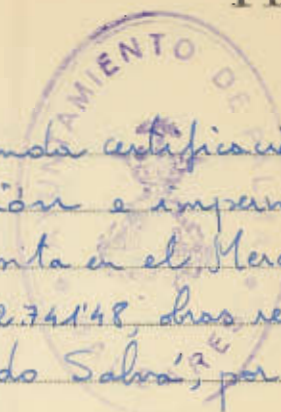 AYUNTAMIENTO DE PAL
nda certificaci
ión e imperm
sita en el Merc
2.741'48, obras re
do Salvá, por